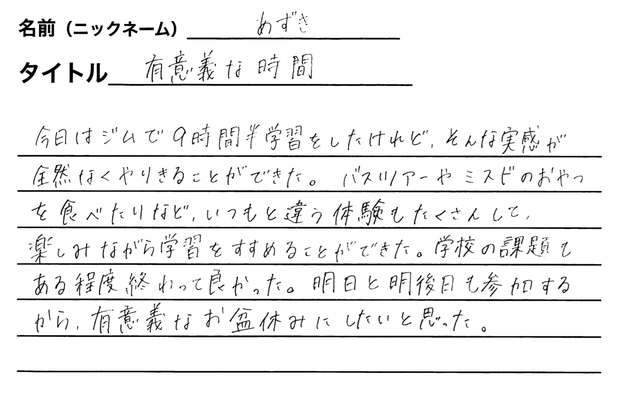 名前（ニックネーム） あずき
タイトル 有意義な時間
今日はジムで9時間半学習をしたけれど、そんな実感が
全然なくやりきることができた。 バスツアーやミスドのおやつ
を食べたりなど、いつもと違う体験もたくさんして、
楽しみながら学習をすすめることができた。学校の課題も
ある程度終わって良かった。明日と明後日も参加する
から、有意義なお盆休みにしたいと思った。